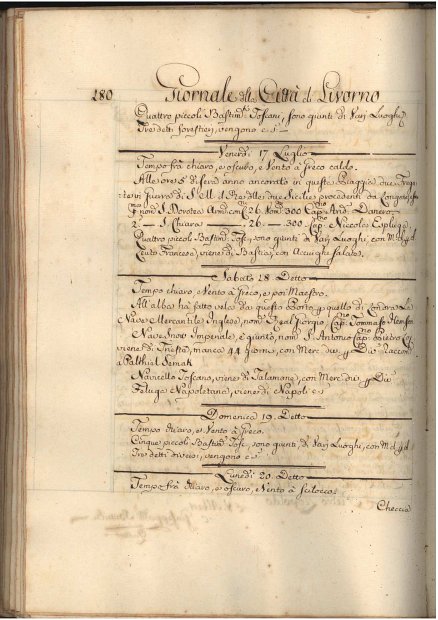 180 Giornale della Città di Livorno
Quattro piccoli Bastimti Toscani, sono giunti di Varj Luoghi
Tre detti forestieri, vengono e s
Venerdi 17 Luglio
Tempo frà chiaro, e oscuro, e Vento à Greco caldo.
Alle ore 5 di sera anno ancorato in queste Spiaggie due Fregate
in guerra di S. M. il Re delle due Sicilie procedenti da
nom S. Dorotea Armta con C. 26 Nom 300 Capno
2 — S. Chiara — 26 — 300 Capno Niccola
Quattro piccoli Bastimti Tosci, sono giunti di Varj Luoghi, con M d
Leuto Francese, viene di Bastia, con Acciughe salate.
Sabato 18 Detto
Tempo chiaro, e Vento à Greco, e poi Maestro.
All'alba hà fatto vela da questo Porto quello di
Nave Mercantile Inglese, nomta Real Giorgio Capno Tommaso
Nave Imperiale, è giunto, nomta S. Antonio Capno
viene di Trieste, manca 44 giorni, con Merc die
Navicello Toscano, viene di Talamone, con Merc die Div
Feluga Napoletana, viene di Napoli e s
Domenica 19 Detto
Tempo chiaro, e Vento à Greco.
Cinque piccoli Bastimti Tosci, sono giunti, di Varj Luoghi, con M d
Tre detti diversi, vengono e s
Lunedi 20 Detto
Tempo frà chiaro, e oscuro, Vento à Scilocco.
Checcia